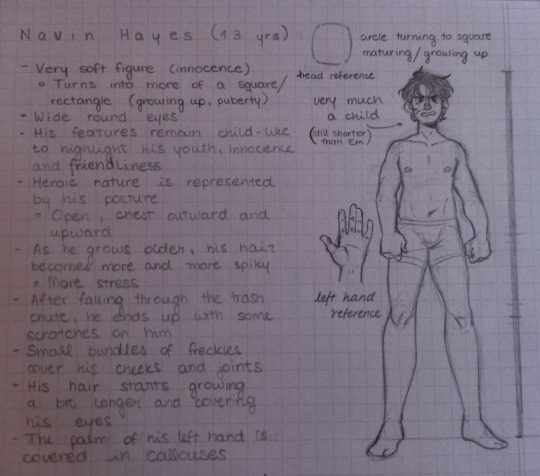 Navin Hayes (13 yrs)
- Very soft figure (innocence)
o Turns into more of a square/
rectangle (growing up, puberty)
- Wide round eyes
- His features remain child-like
to highlight his youth, innocence
and friendliness
- Heroic nature is represented
by his posture
o Open, chest outward and
upward
- As he grows older, his hair
becomes more and more spiky
o More stress
- After falling through the trash
chute, he ends up with some
scratches on him
- Small bundles of freckles
cover his cheeks and joints
- His hair starts growing
a bit longer and covering
his eyes
- The palm of his left hand is
covered in callouses
circle turning to square
maturing/growing up
head reference
very much
a child
(still shorter
than Em)
left hand
reference